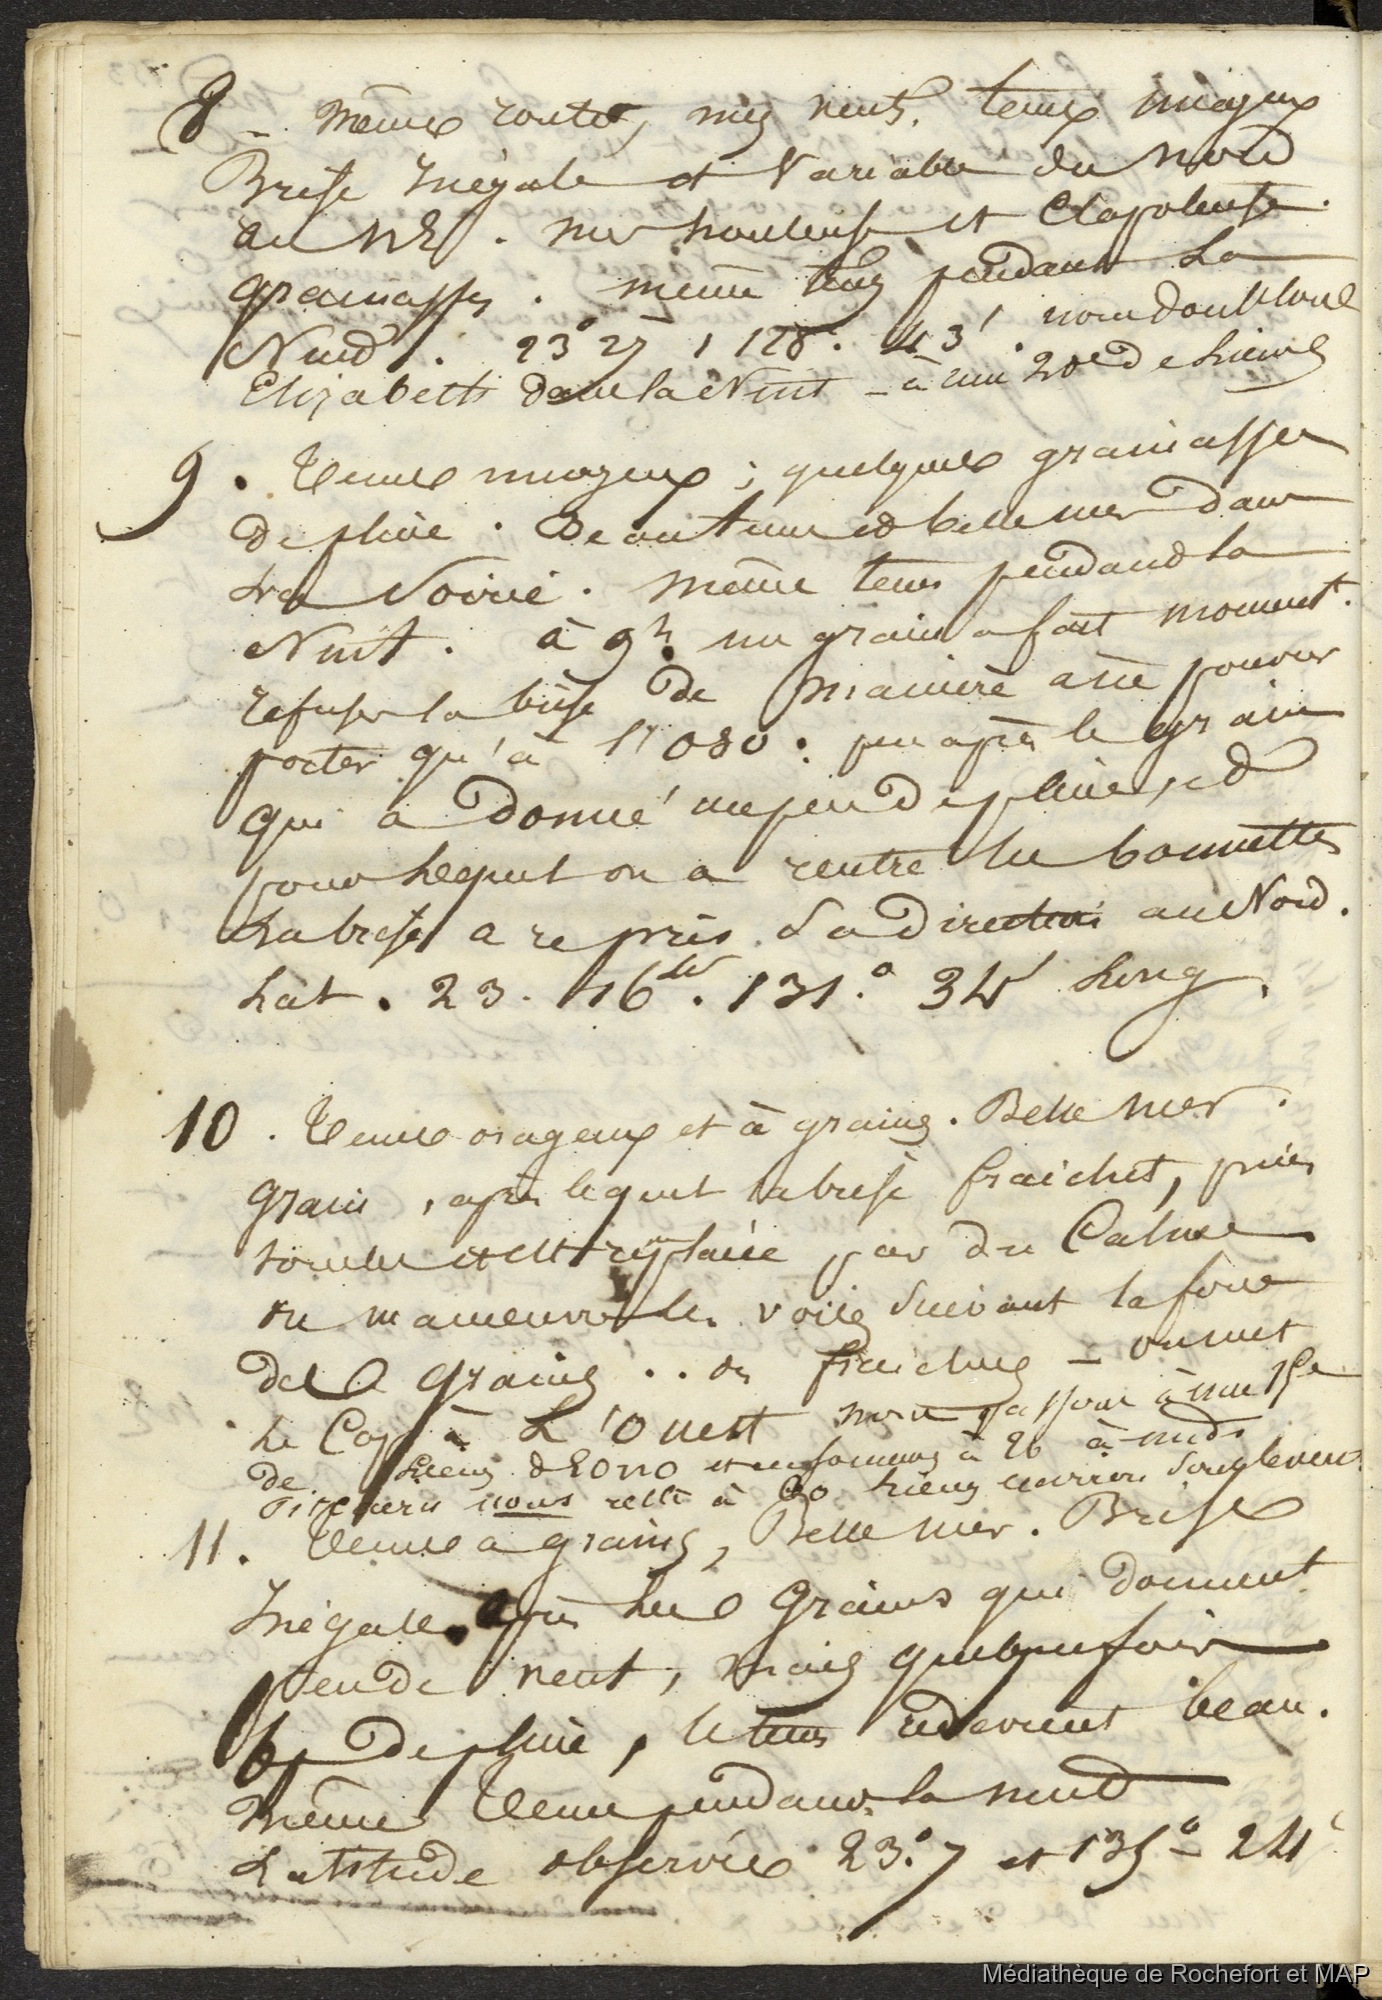 8 - même route, mes vents. tems nuageux
Brise Inégale et Variable du Nord
au NE. mer houleuse et Clapoteuse.
grainasses. même tems pendant La
Nuid. 23° 27 , 128°. 43'. nous doublons
Elizabeth dans la Nuit - à une 20e de Lieues
9. Tems nuageux ; quelques grainasses
de pluie. Beau tems et belle mer dans
La Soirée. même tems pendand la
Nuit. à 9h. un grain a fait moment.
refuser la brise de manière a ne pouvoir
porter qu'à l'OSO. peu après le grain
qui a donné un peu de pluie, et
pour Lequel on a rentré les bonnettes
La brise a repris Sa direction au Nord.
Lat. 23. 16' . 131.° 34' Long.
10. Tems orageux et à grains. Belle mer.
grain, après lequel la brise fraichit, puis
tombe et est remplacée par du Calme
on manoeuvre les voiles Suivant la force
des grains .. ou fraicheurs - on met
Le Cap à L'Ouest nous passons à une 15e
de Lieues d'Oono et en sommes à 26 à midi
Pitcairn nous reste à 60 Lieues environ Sous le vent.
11. Tems a grains, Belle mer. Brise
Inégale. après Les Grains qui donnent
peu de vent, mais quelquefois
bp de pluie, le tems redevient beau.
même Tems pendant la nuid
Latitude observée 23.° 7 et 135° - 24'
Médiathèque de Rochefort et MAP